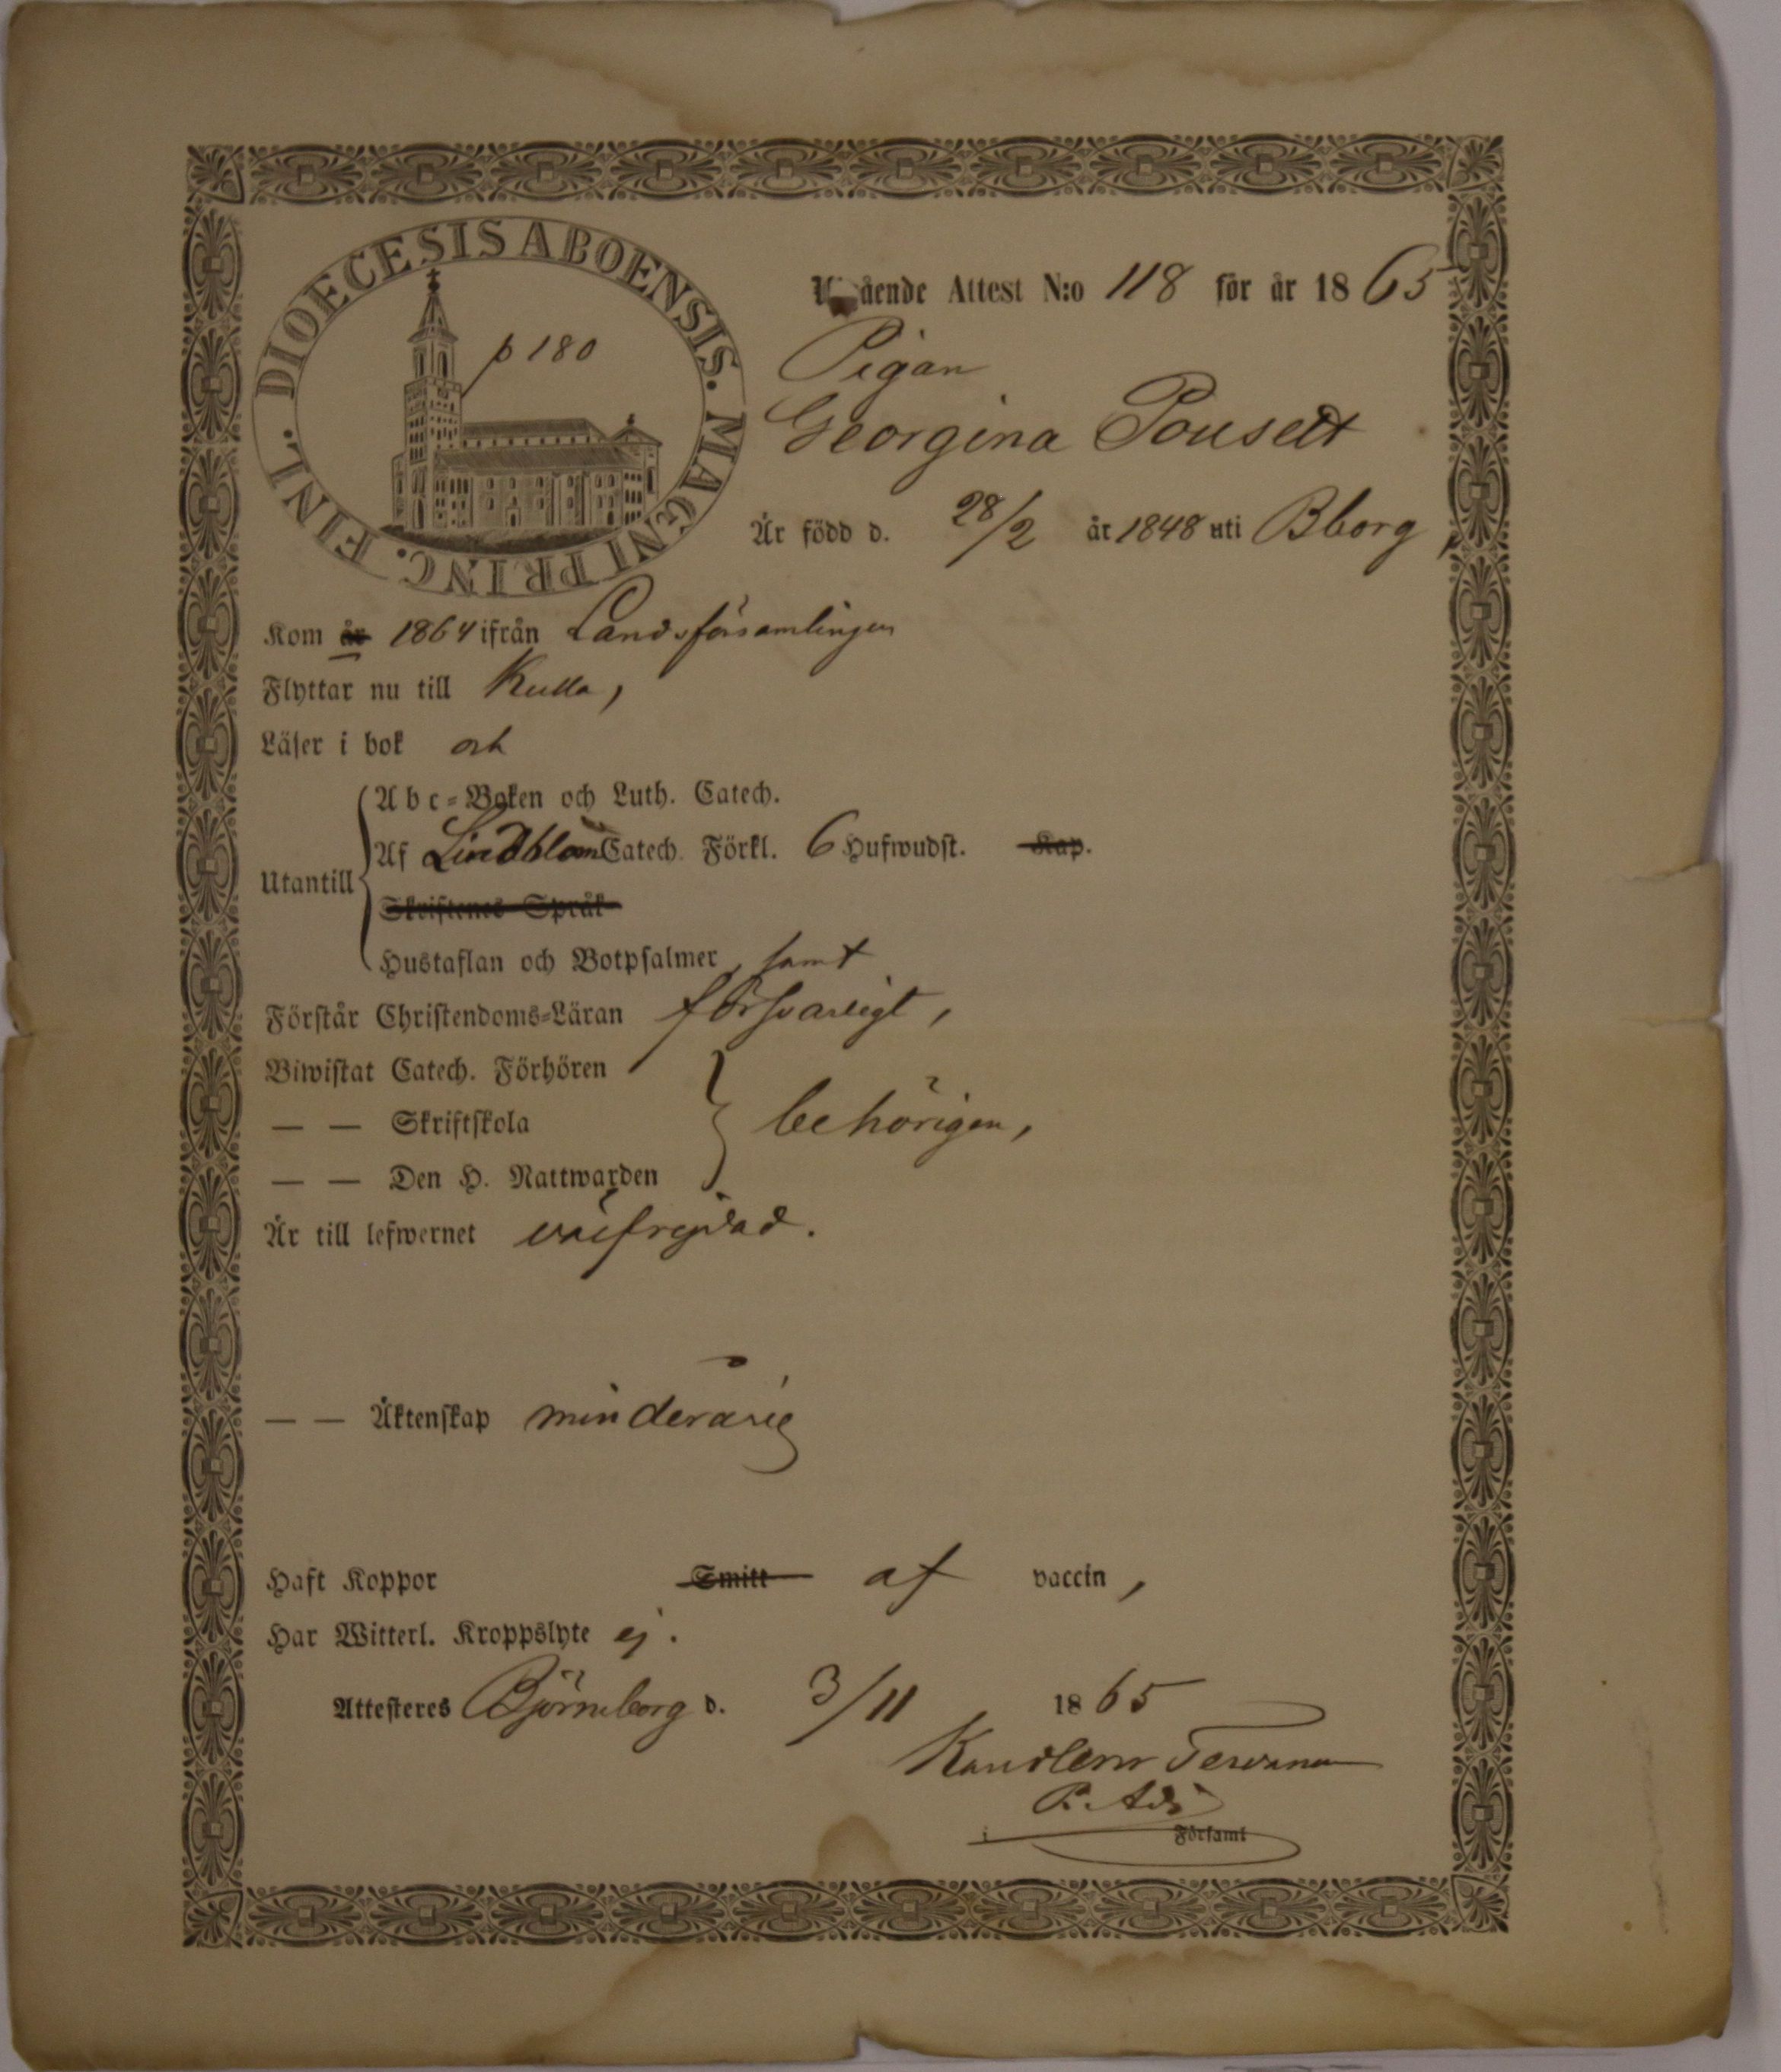 DIOECESIS ABOENSIS. MAGNI PRINC. FINL.
p 180
Utgående Attest N:o 118 för år 1865
Pigan
Georgina Pousett
Är född d. 28/2 år 1848 uti Bborg,
Kom år 1864 ifrån Landsförsamlingen
Flyttar nu till Kulla,
Läser i bok och
Utantill
Abc-Boken och Luth. Catech.
Af Lindblom Catech. Förkl. 6 Hufwudst. Kap.
Skriftenes Språk
Hustaflan och Botpsalmer, samt
Förstår Christendoms-Läran försvarligt,
Biwistat Catech. Förhören
— — Skriftskola behörigen,
— — Den H. Nattwarden
Är till lefwernet välfrejdad.
— — Äktenskap minderårig
Haft Koppor Smitt af vaccin,
Har Witterl. Kroppslyte ej.
Attesteres Björneborg d. 3/11 1865
P. Adj
i Församl